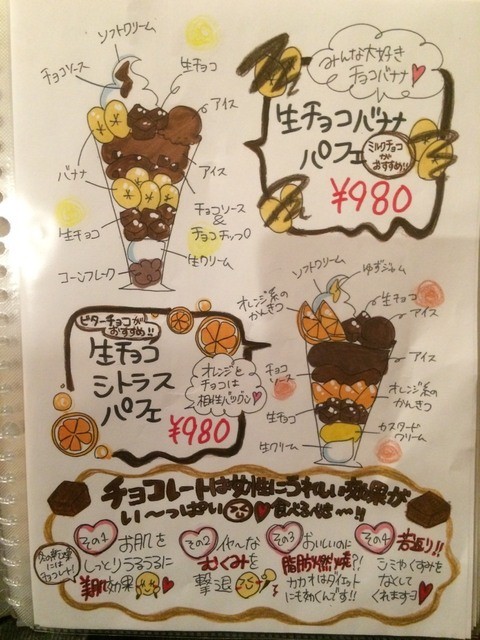 ソフトクリーム
チョコソース
生チョコ
アイス
バナナ
アイス
生チョコ
チョコソース
&
チョコチップ
生クリーム
コーンフレーク
みんな大好き
チョコバナナ
生チョコバナナ
パフェ
ミルクチョコ
が
おすすめ!!
¥980
ソフトクリーム
ゆずジャム
オレンジ系の
かんきつ
生チョコ
アイス
アイス
チョコ
ソース
オレンジ系の
かんきつ
生チョコ
カスタード
クリーム
生クリーム
ビターチョコが
おすすめ!!
生チョコ
シトラス
パフェ
¥980
オレンジと
チョコは
相性バツグン
チョコレートは女性にうれしい効果が
い〜っぱい
食べるべき〜!!
その1
お肌を
しっとりうるうるに
美肌効果
その2
イヤ〜な
むくみを
撃退
その3
おいしいのに
脂肪燃焼?!
カカオはダイエット
にもむくんです!!
その4
若返り!!
シミやくすみを
なくして
くれますヨ